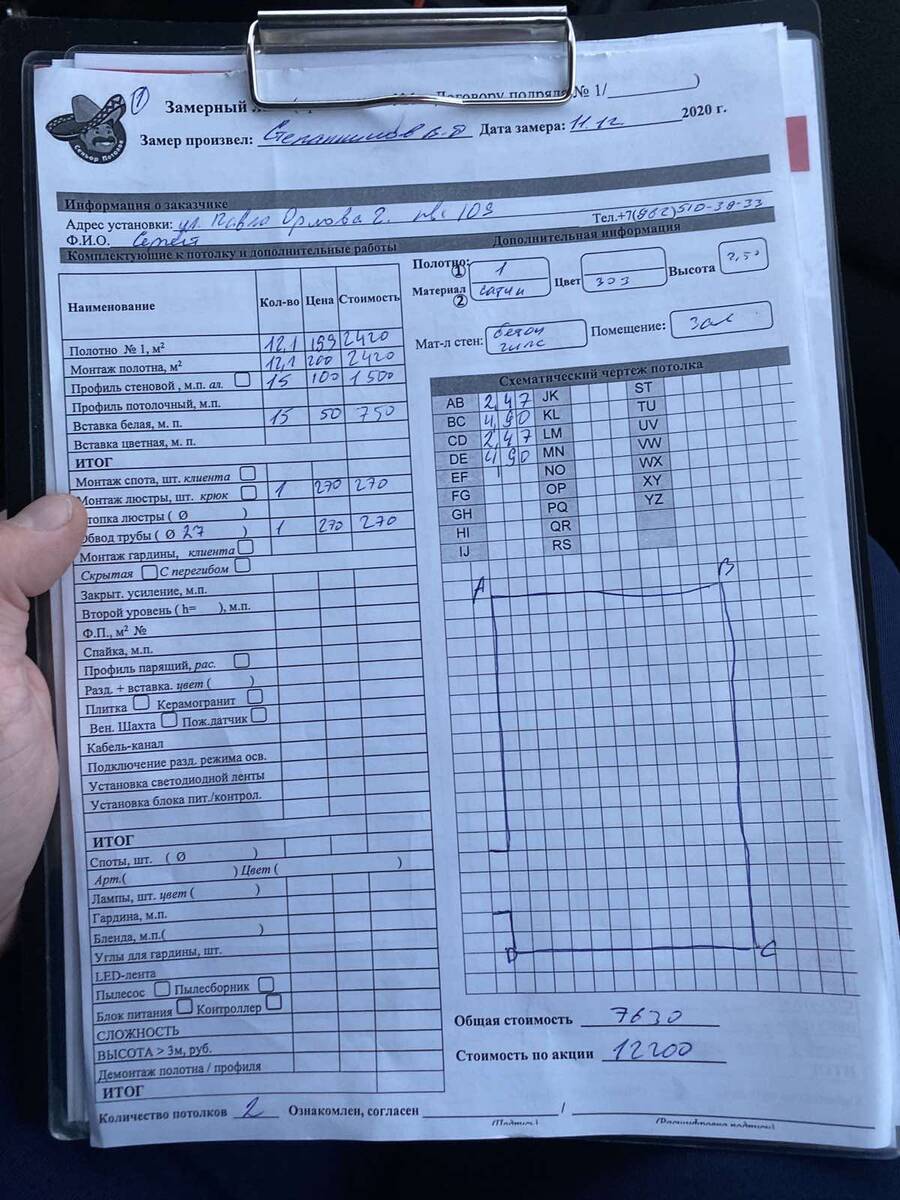 1
Замерный Договору подряда № 1/________)
Сеньор Потолок
Замер произвел: Дата замера: 11.12 2020 г.
Информация о заказчике
Адрес установки: ул. Павла Орлова 2. кв 109 Тел.+7(962)510-38-33
Ф.И.О. Сергей
Комплектующие к потолку и дополнительные работы
Дополнительная информация
Наименование Кол-во Цена Стоимость
Полотно № 1, м² 12,1 199 2420
Монтаж полотна, м² 12,1 200 2420
Профиль стеновой , м.п. ал. 15 100 1500
Профиль потолочный, м.п.
Вставка белая, м. п. 15 50 750
Вставка цветная, м. п.
ИТОГ
Монтаж спота, шт. клиента
Монтаж люстры, шт. крюк 1 270 270
топка люстры ( Ø )
бвод трубы ( Ø 27 ) 1 270 270
Монтаж гардины, клиента
Скрытая С перегибом
Закрыт. усиление, м.п.
Второй уровень ( h= ), м.п.
Ф.П., м² №
Спайка, м.п.
Профиль парящий, рас.
Разд. + вставка. цвет ( )
Плитка Керамогранит
Вен. Шахта Пож.датчик
Кабель-канал
Подключение разд. режима осв.
Установка светодиодной ленты
Установка блока пит./контрол.
ИТОГ
Споты, шт. ( Ø )
Арт.( ) Цвет ( )
Лампы, шт. цвет ( )
Гардина, м.п.
Бленда, м.п.( )
Углы для гардины, шт.
LED-лента
Пылесос Пылесборник
Блок питания Контроллер
СЛОЖНОСТЬ
ВЫСОТА > 3м, руб.
Демонтаж полотна / профиля
ИТОГ
Полотно: 1
Материал 2 сатин Цвет 303 Высота 2,50
Мат-л стен: бетон гипс Помещение: Зал
Схематический чертеж потолка
AB 2,47 JK ST
BC 4,90 KL TU
CD 2,47 LM UV
DE 4,90 MN VW
EF NO WX
FG OP XY
GH PQ YZ
HI QR
IJ RS
A B
D C
Общая стоимость 7630
Стоимость по акции 12200
Количество потолков 2 Ознакомлен, согласен ________ / ________
(Подпись) (Расшифровка подписи)